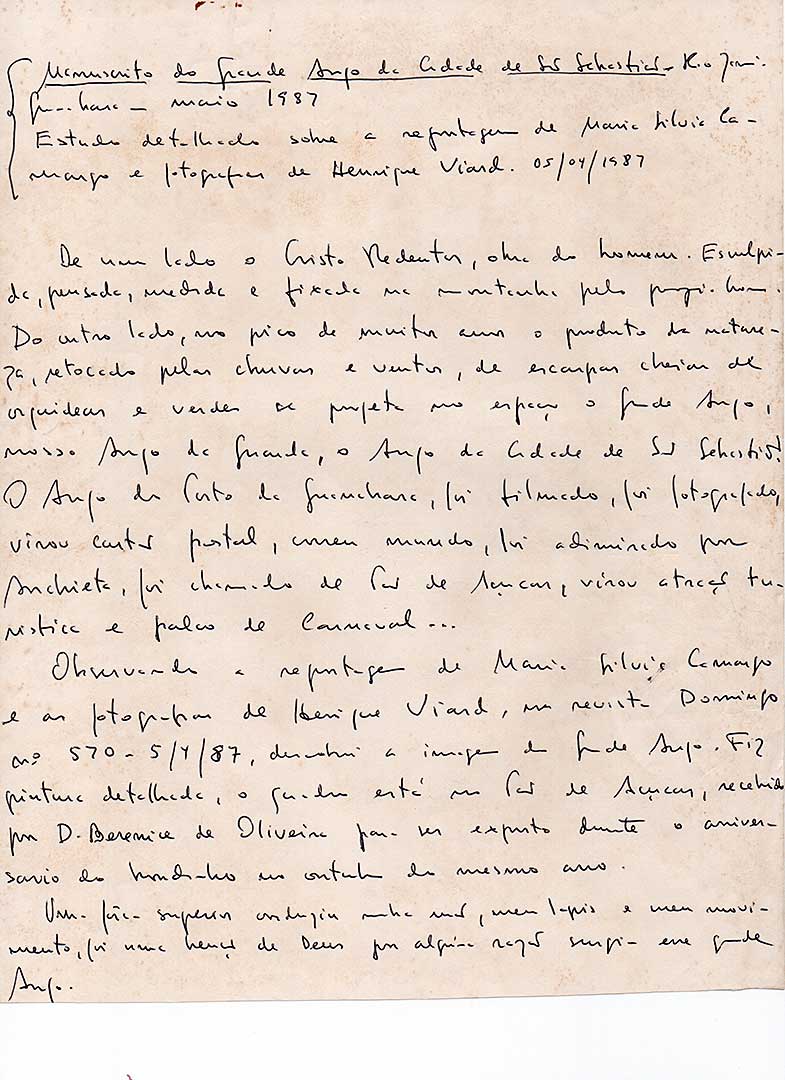 Manuscrito do Grande Anjo da Cidade de São Sebastião - Rio Jan.
Guanabara - maio 1987
Estudo detalhado sobre a reportagem de Maria Silvia Ca-
margo e fotografias de Henrique Viard. 05/04/1987
De um lado o Cristo Redentor, obra do homem. Esculpi-
da, pensada, medida e fixada na montanha pelo próprio hom.
Do outro lado, no pico de muitos anos o produto da nature-
za, retocado pelas chuvas e ventos, de escarpas cheias de
orquideas e verdes se projeta no espaço o Grande Anjo,
nosso Anjo da Guarda, o Anjo da Cidade de São Sebastião.
O Anjo do Porto da Guanabara, foi filmado, foi fotografado,
virou cartão postal, correu mundo, foi adimirado por
Anchieta, foi chamado de Pão de Açucar, virou atração tu-
ristica e palco de Carnaval...
Observando a reportagem de Maria Silvia Camargo
e as fotografias de Henrique Viard, na revista Domingo
nº 570 - 5/4/87, descobri a imagem do Grande Anjo. Fiz
pintura detalhada, o quadro está no Pão de Açucar, recebido
por D. Berenice de Oliveira para ser exposto durante o aniver-
sario do bondinho no outubro do mesmo ano.
Uma força superior conduziu minha mão, meu lapis e meu movi-
mento, foi uma benção de Deus por alguma razão surgiu esse grande
Anjo.